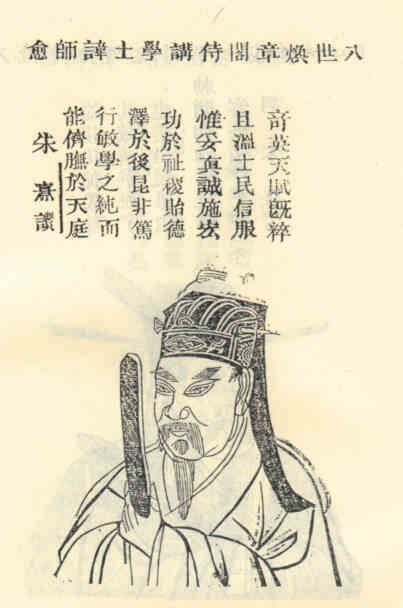 八世煥章閣侍講學士諱師愈
竒英天賦既粹
且溫士民信服
惟妥真誠施宏
功於社稷貽德
澤於後昆非篤
行敏學之純而
能儕膴於天庭
朱熹讚